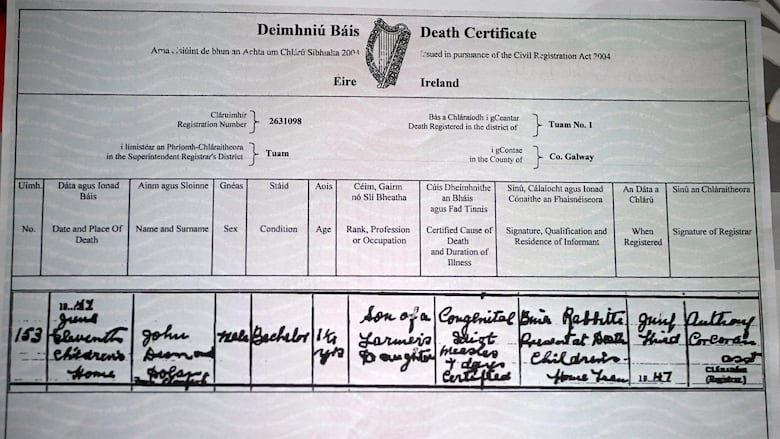 Deimhniú Báis
Death Certificate
Arna eisiúint de bhun an Achta um Chlárú Sibhialta 2004
Issued in pursuance of the Civil Registration Act 2004
Éire
Ireland
Cláruimhir
Registration Number
2631098
Bás a Chláraíodh i gCeantar
Death Registered in the district of
Tuam No. 1
i limistéar an Phríomh-Chláraitheora
in the Superintendent Registrar's District
Tuam
i gContae
in the County of
Co. Galway
Uimh.
No.
Dáta agus Ionad
Báis
Date and Place Of
Death
Ainm agus Sloinne
Name and Surname
Gnéas
Sex
Stáid
Condition
Aois
Age
Céim, Gairm
nó Slí Bheatha
Rank, Profession
or Occupation
Cúis Dheimhnithe
an Bháis
agus Fad Tinnis
Certified Cause of
Death
and Duration of
Illness
Síniú, Cáilíocht agus Ionad
Cónaithe an Fhaisnéiseora
Signature, Qualification and
Residence of Informant
An Dáta a
Chlárú
When
Registered
Síniú an Chláraitheora
Signature of Registrar
153
19..47
June
Eleventh
Children's
Home
John
Desmond
Dolan
Male
Bachelor
1¼
yrs
Son of a
Farmer's
Daughter
Congenital
Idiot
Measles
7 days
Certified
Rabbitte
Present at Death
Children's
Home Tuam
Third
19.47
Anthony
Corcoran
asst
Cláraitheoir
(Registrar)